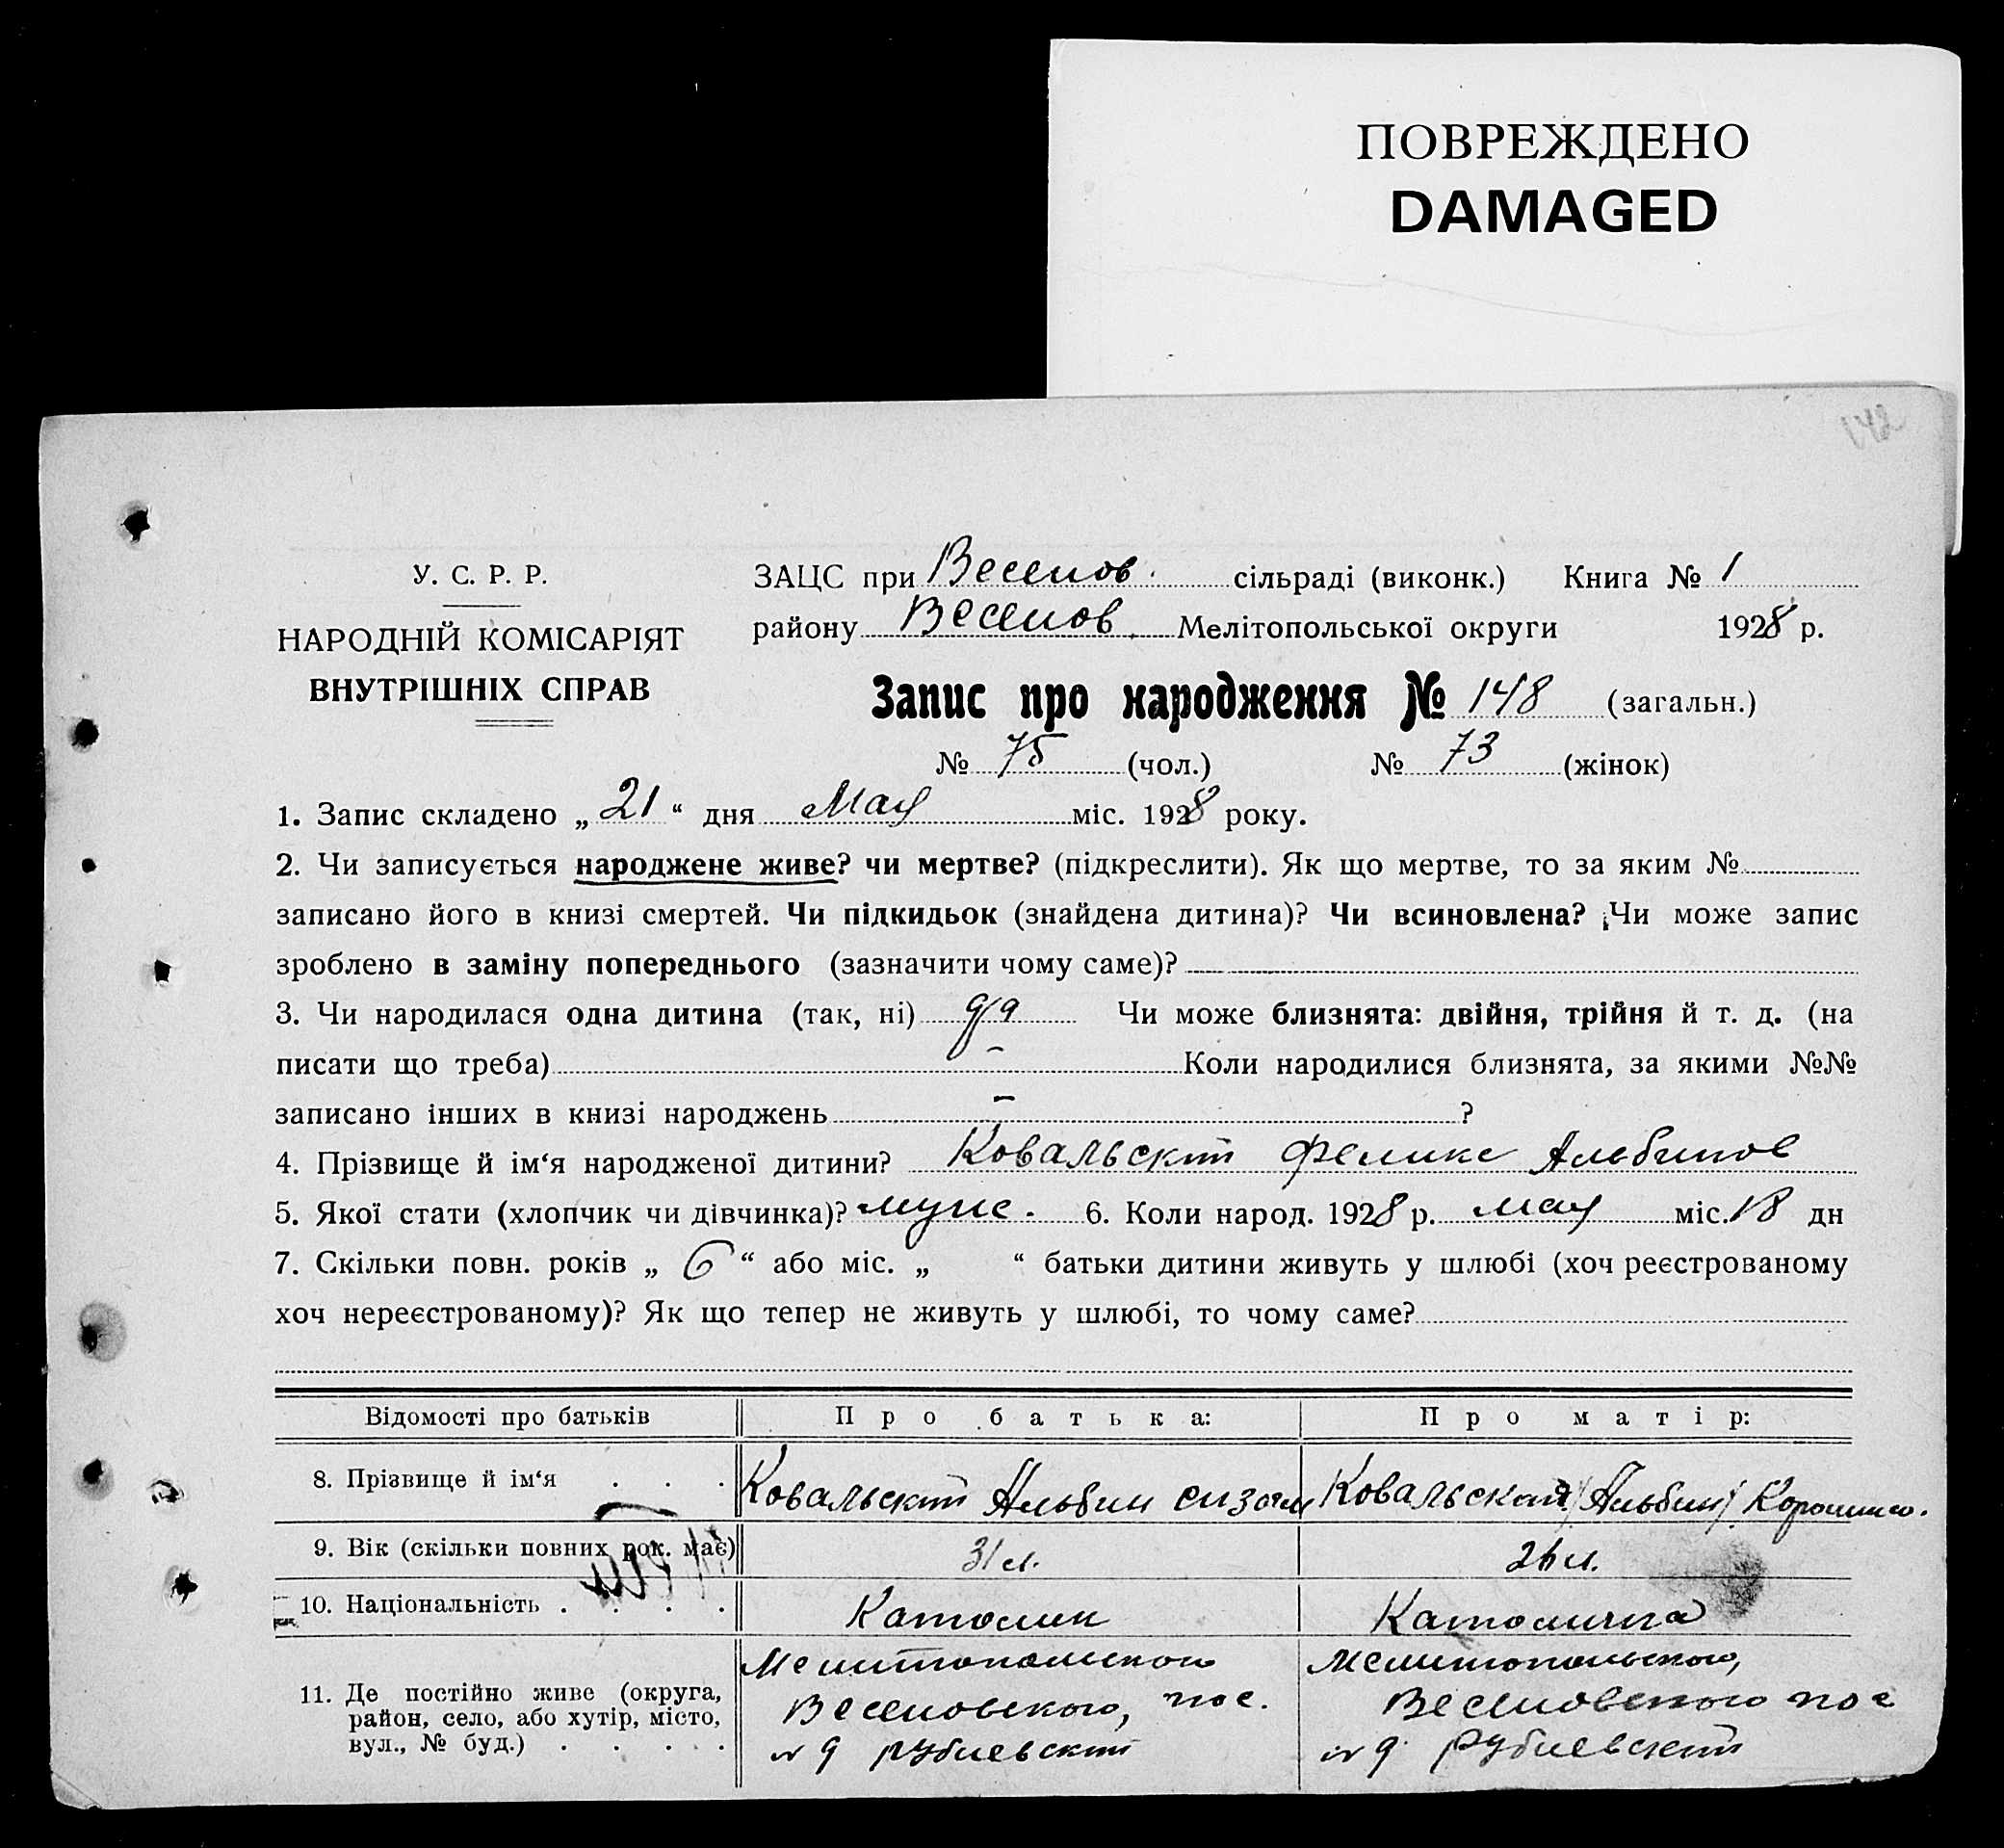 ПОВРЕЖДЕНО
DAMAGED
142
У. С. Р. Р.
НАРОДНІЙ КОМІСАРІЯТ
ВНУТРІШНІХ СПРАВ
ЗАЦС при Веселов. сільраді (виконк.) Книга № 1
району Веселов. Мелітопольської округи 1928 р.
Запис про народження № 148 (загальн.)
№ 75 (чол.) № 73 (жінок)
1. Запис складено „21“ дня Мая міс. 1928 року.
2. Чи записується народжене живе? чи мертве? (підкреслити). Як що мертве, то за яким №
записано його в книзі смертей. Чи підкидьок (знайдена дитина)? Чи всиновлена? Чи може запис
зроблено в заміну попереднього (зазначити чому саме)?
3. Чи народилася одна дитина (так, ні) да Чи може близнята: двійня, трійня й т. д. (на
писати що треба) – Коли народилися близнята, за якими №№
записано інших в книзі народжень – ?
4. Прізвище й ім‘я народженої дитини? Ковальский Феликс Альбинов
5. Якої стати (хлопчик чи дівчинка)? муж. 6. Коли народ. 1928 р. мая міс. 18 дн
7. Скільки повн. років „6“ або міс. „ “ батьки дитини живуть у шлюбі (хоч реєстрованому
хоч нереєстрованому)? Як що тепер не живуть у шлюбі, то чому саме?
Відомості про батьків Про батька: Про матір:
8. Прізвище й ім‘я . . . Ковальский Альбин Ковальская /Альбин/
9. Вік (скільки повних рок. має) 31 л. 26 л.
10. Національність . . . . Католик Католичка
11. Де постійно живе (округа, район, село, або хутір, місто, вул., № буд.) . . . .
Мелитопольского Мелитопольского,
Веселовского, пос. Веселовского пос
№ 9 Рублевский № 9 Рублевский